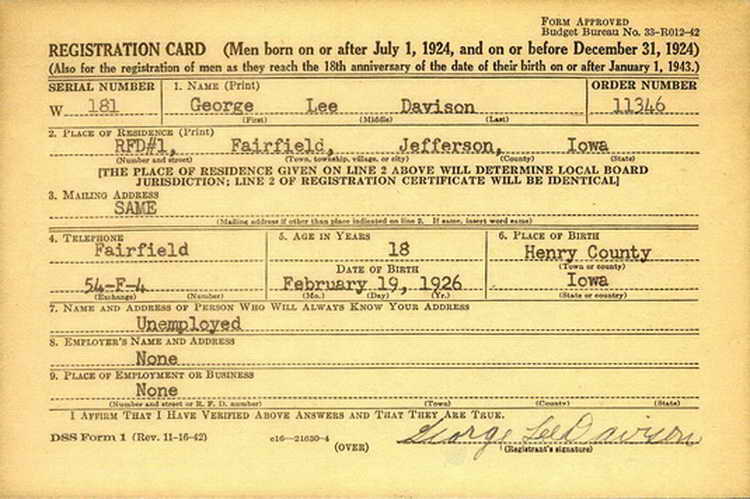 FORM APPROVED
Budget Bureau No. 33-R012-42
REGISTRATION CARD (Men born on or after July 1, 1924, and on or before December 31, 1924)
(Also for the registration of men as they reach the 18th anniversary of the date of their birth on or after January 1, 1943.)
SERIAL NUMBER 1. NAME (Print) ORDER NUMBER
W 181 George Lee Davison 11346
(First) (Middle) (Last)
2. PLACE OF RESIDENCE (Print)
RFD#1, Fairfield, Jefferson, Iowa
(Number and street) (Town, township, village, or city) (County) (State)
[THE PLACE OF RESIDENCE GIVEN ON LINE 2 ABOVE WILL DETERMINE LOCAL BOARD
JURISDICTION; LINE 2 OF REGISTRATION CERTIFICATE WILL BE IDENTICAL]
3. MAILING ADDRESS
SAME
(Mailing address if other than place indicated on line 2. If same, insert word same)
4. TELEPHONE 5. AGE IN YEARS 6. PLACE OF BIRTH
Fairfield 18 Henry County
DATE OF BIRTH (Town or county)
54-F-4 February 19, 1926 Iowa
(Exchange) (Number) (Mo.) (Day) (Yr.) (State or country)
7. NAME AND ADDRESS OF PERSON WHO WILL ALWAYS KNOW YOUR ADDRESS
Unemployed
8. EMPLOYER'S NAME AND ADDRESS
None
9. PLACE OF EMPLOYMENT OR BUSINESS
None
(Number and street or R. F. D. number) (Town) (County) (State)
I AFFIRM THAT I HAVE VERIFIED ABOVE ANSWERS AND THAT THEY ARE TRUE.
DSS Form 1 (Rev. 11-16-42) c16—21630-4 George Lee Davison
(OVER) (Registrant's signature)